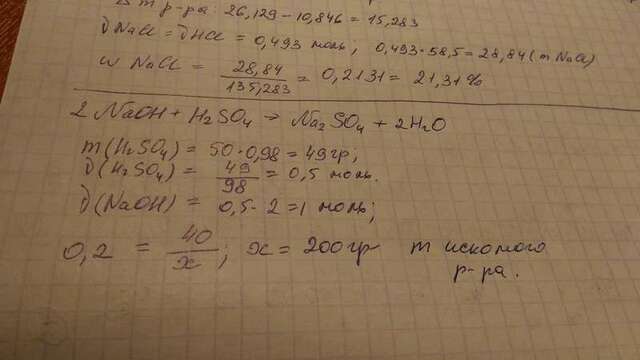 m р-ра: 26,129 - 10,846 = 15,283
∂ NaCl = ∂ HCl = 0,493 моль, 0,493 · 58,5 = 28,84 (m NaCl)
ω NaCl = 28,84 / 135,283 = 0,2131 = 21,31 %
2 NaOH + H₂SO₄ → Na₂SO₄ + 2H₂O
m (H₂SO₄) = 50 · 0,98 = 49 гр;
∂ (H₂SO₄) = 49 / 98 = 0,5 моль.
∂ (NaOH) = 0,5 · 2 = 1 моль;
0,2 = 40 / x ; x = 200 гр m искомого
р-ра.